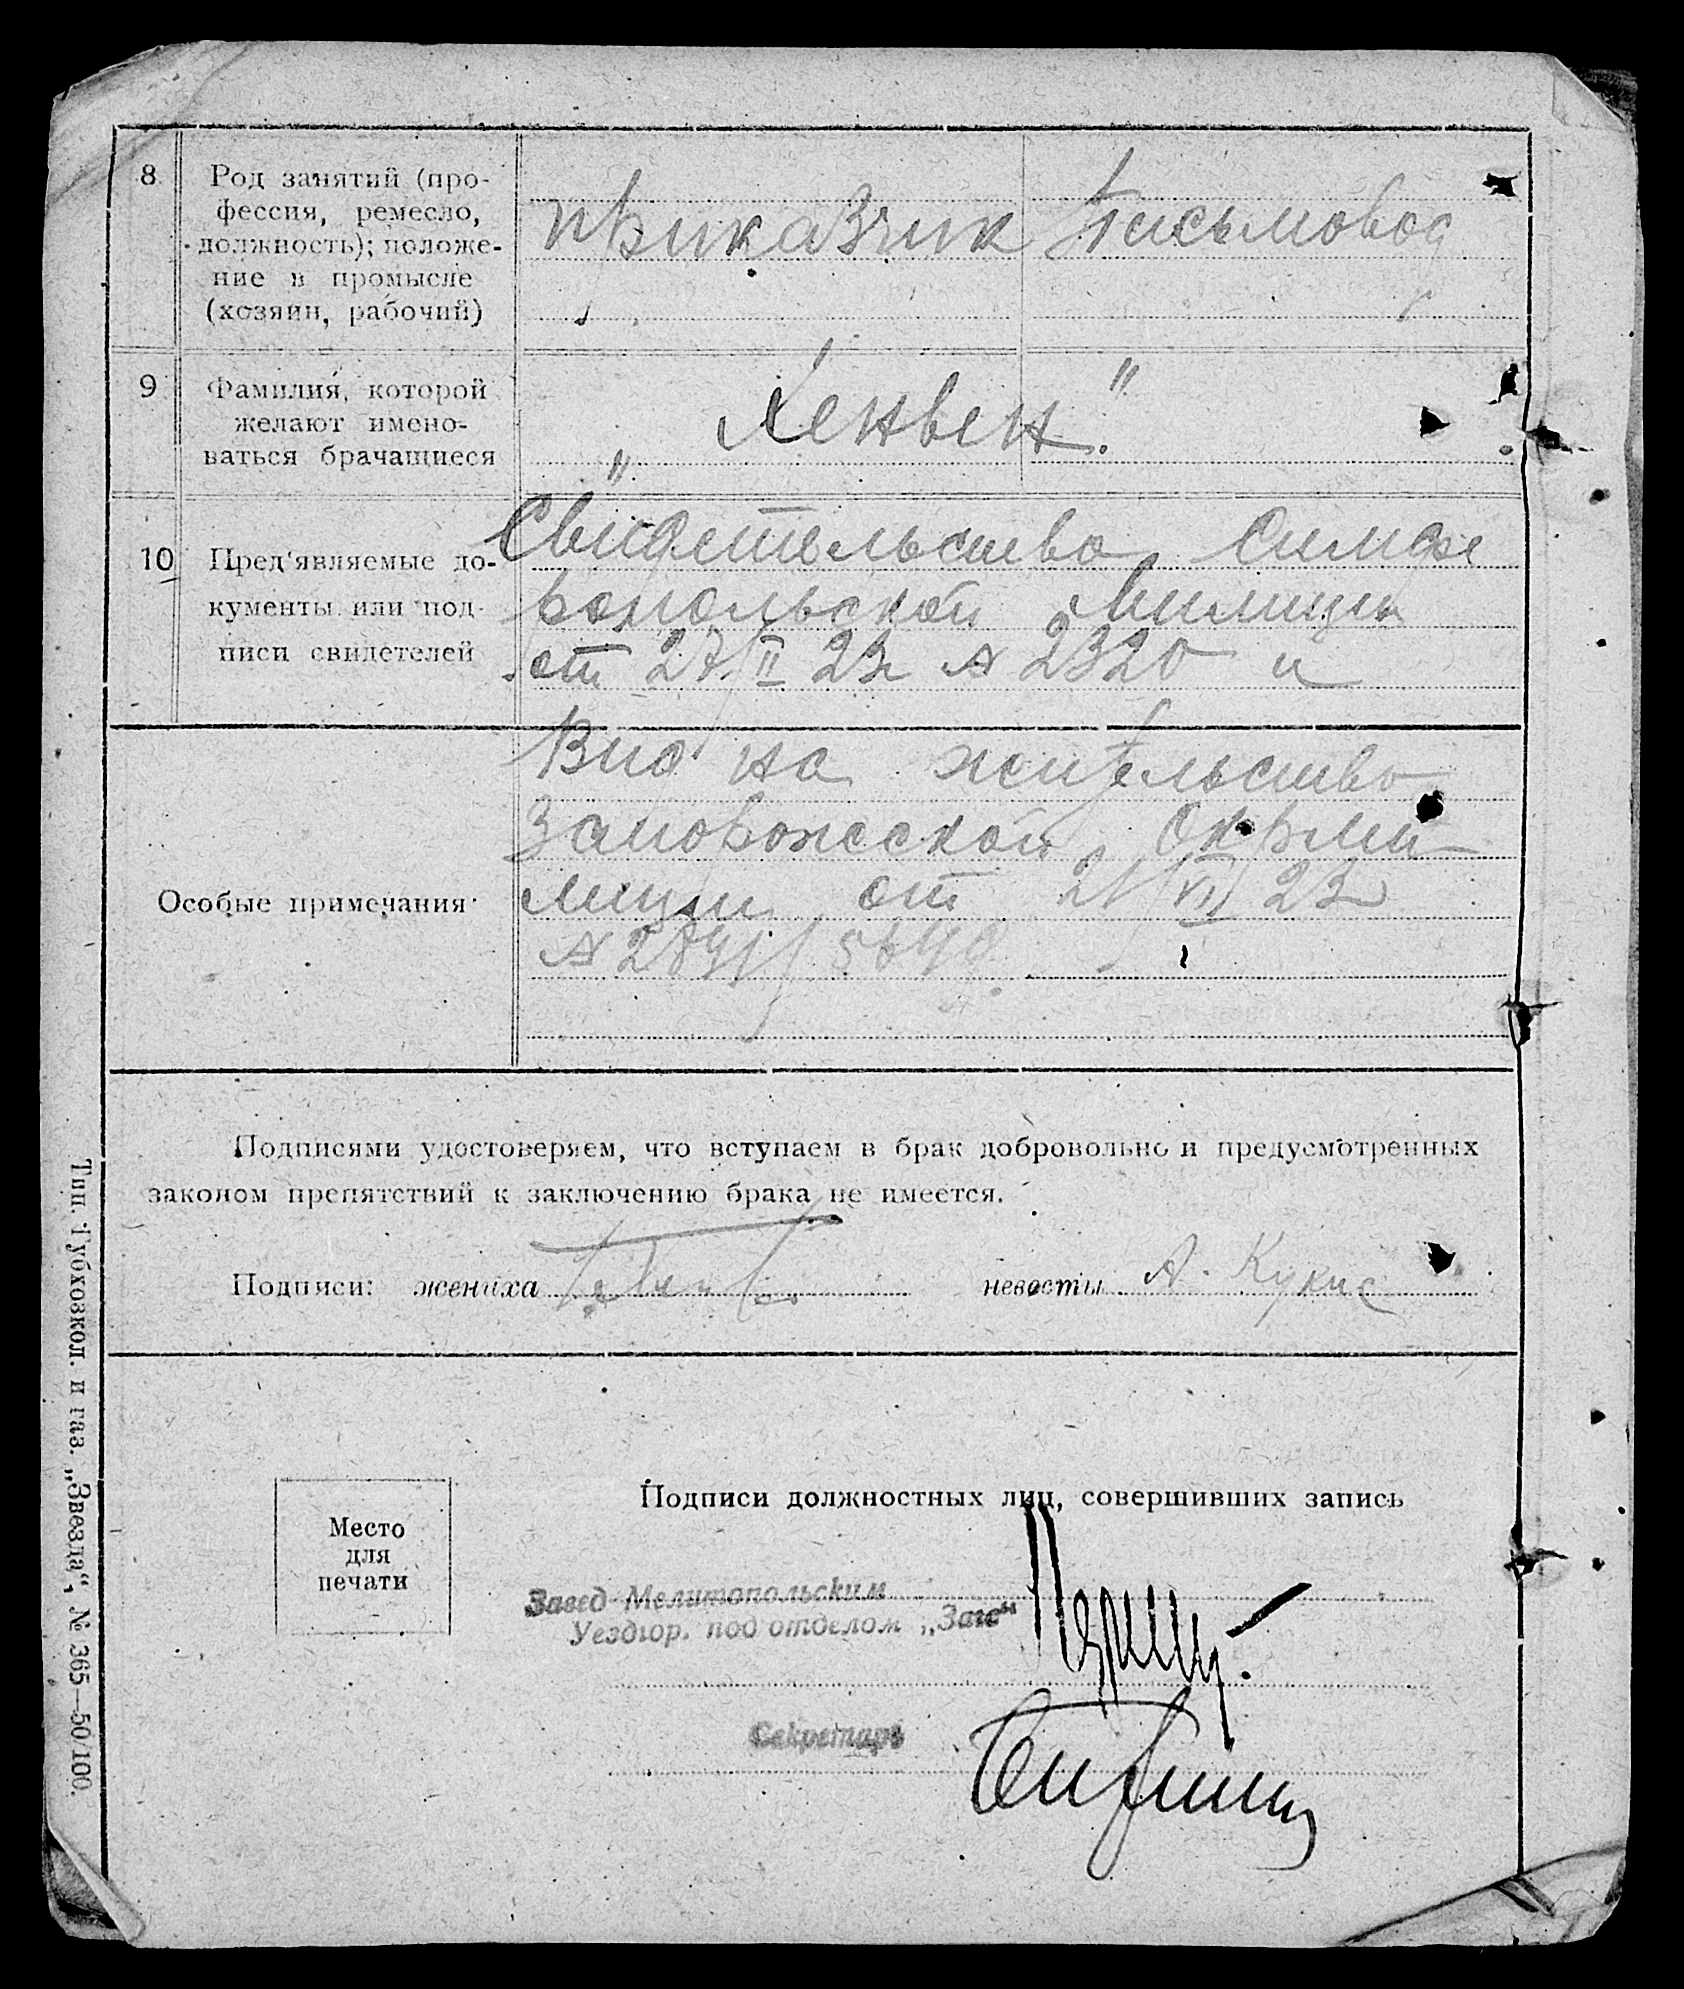 8 Род занятий (про-
фессия, ремесло,
должность); положе-
ние в промысле
(хозяин, рабочий)
приказчик Письмовод
9 Фамилия, которой
желают имено-
ваться брачащиеся
„ Хенвен. "
10 Пред'являемые до-
кументы или под-
писи свидетелей
Свидетельство Симфе
ропольской Милиции
от 27/II 23 г № 2320 и
Особые примечания
Вид на жительство
Запорожской Окрми
лиции от 21/VII 23
№ 2891/5698
Подписями удостоверяем, что вступаем в брак добровольно и предусмотренных
законом препятствий к заключению брака не имеется.
Подписи: жениха невесты А. Кукис
Место
для
печати
Подписи должностных лиц, совершивших запись
Завед Мелитопольским
Уездюр. под отделом „Загс"
Секретарь
Тип. Губхозкол. и газ. „Звезда", № 365—50/100.